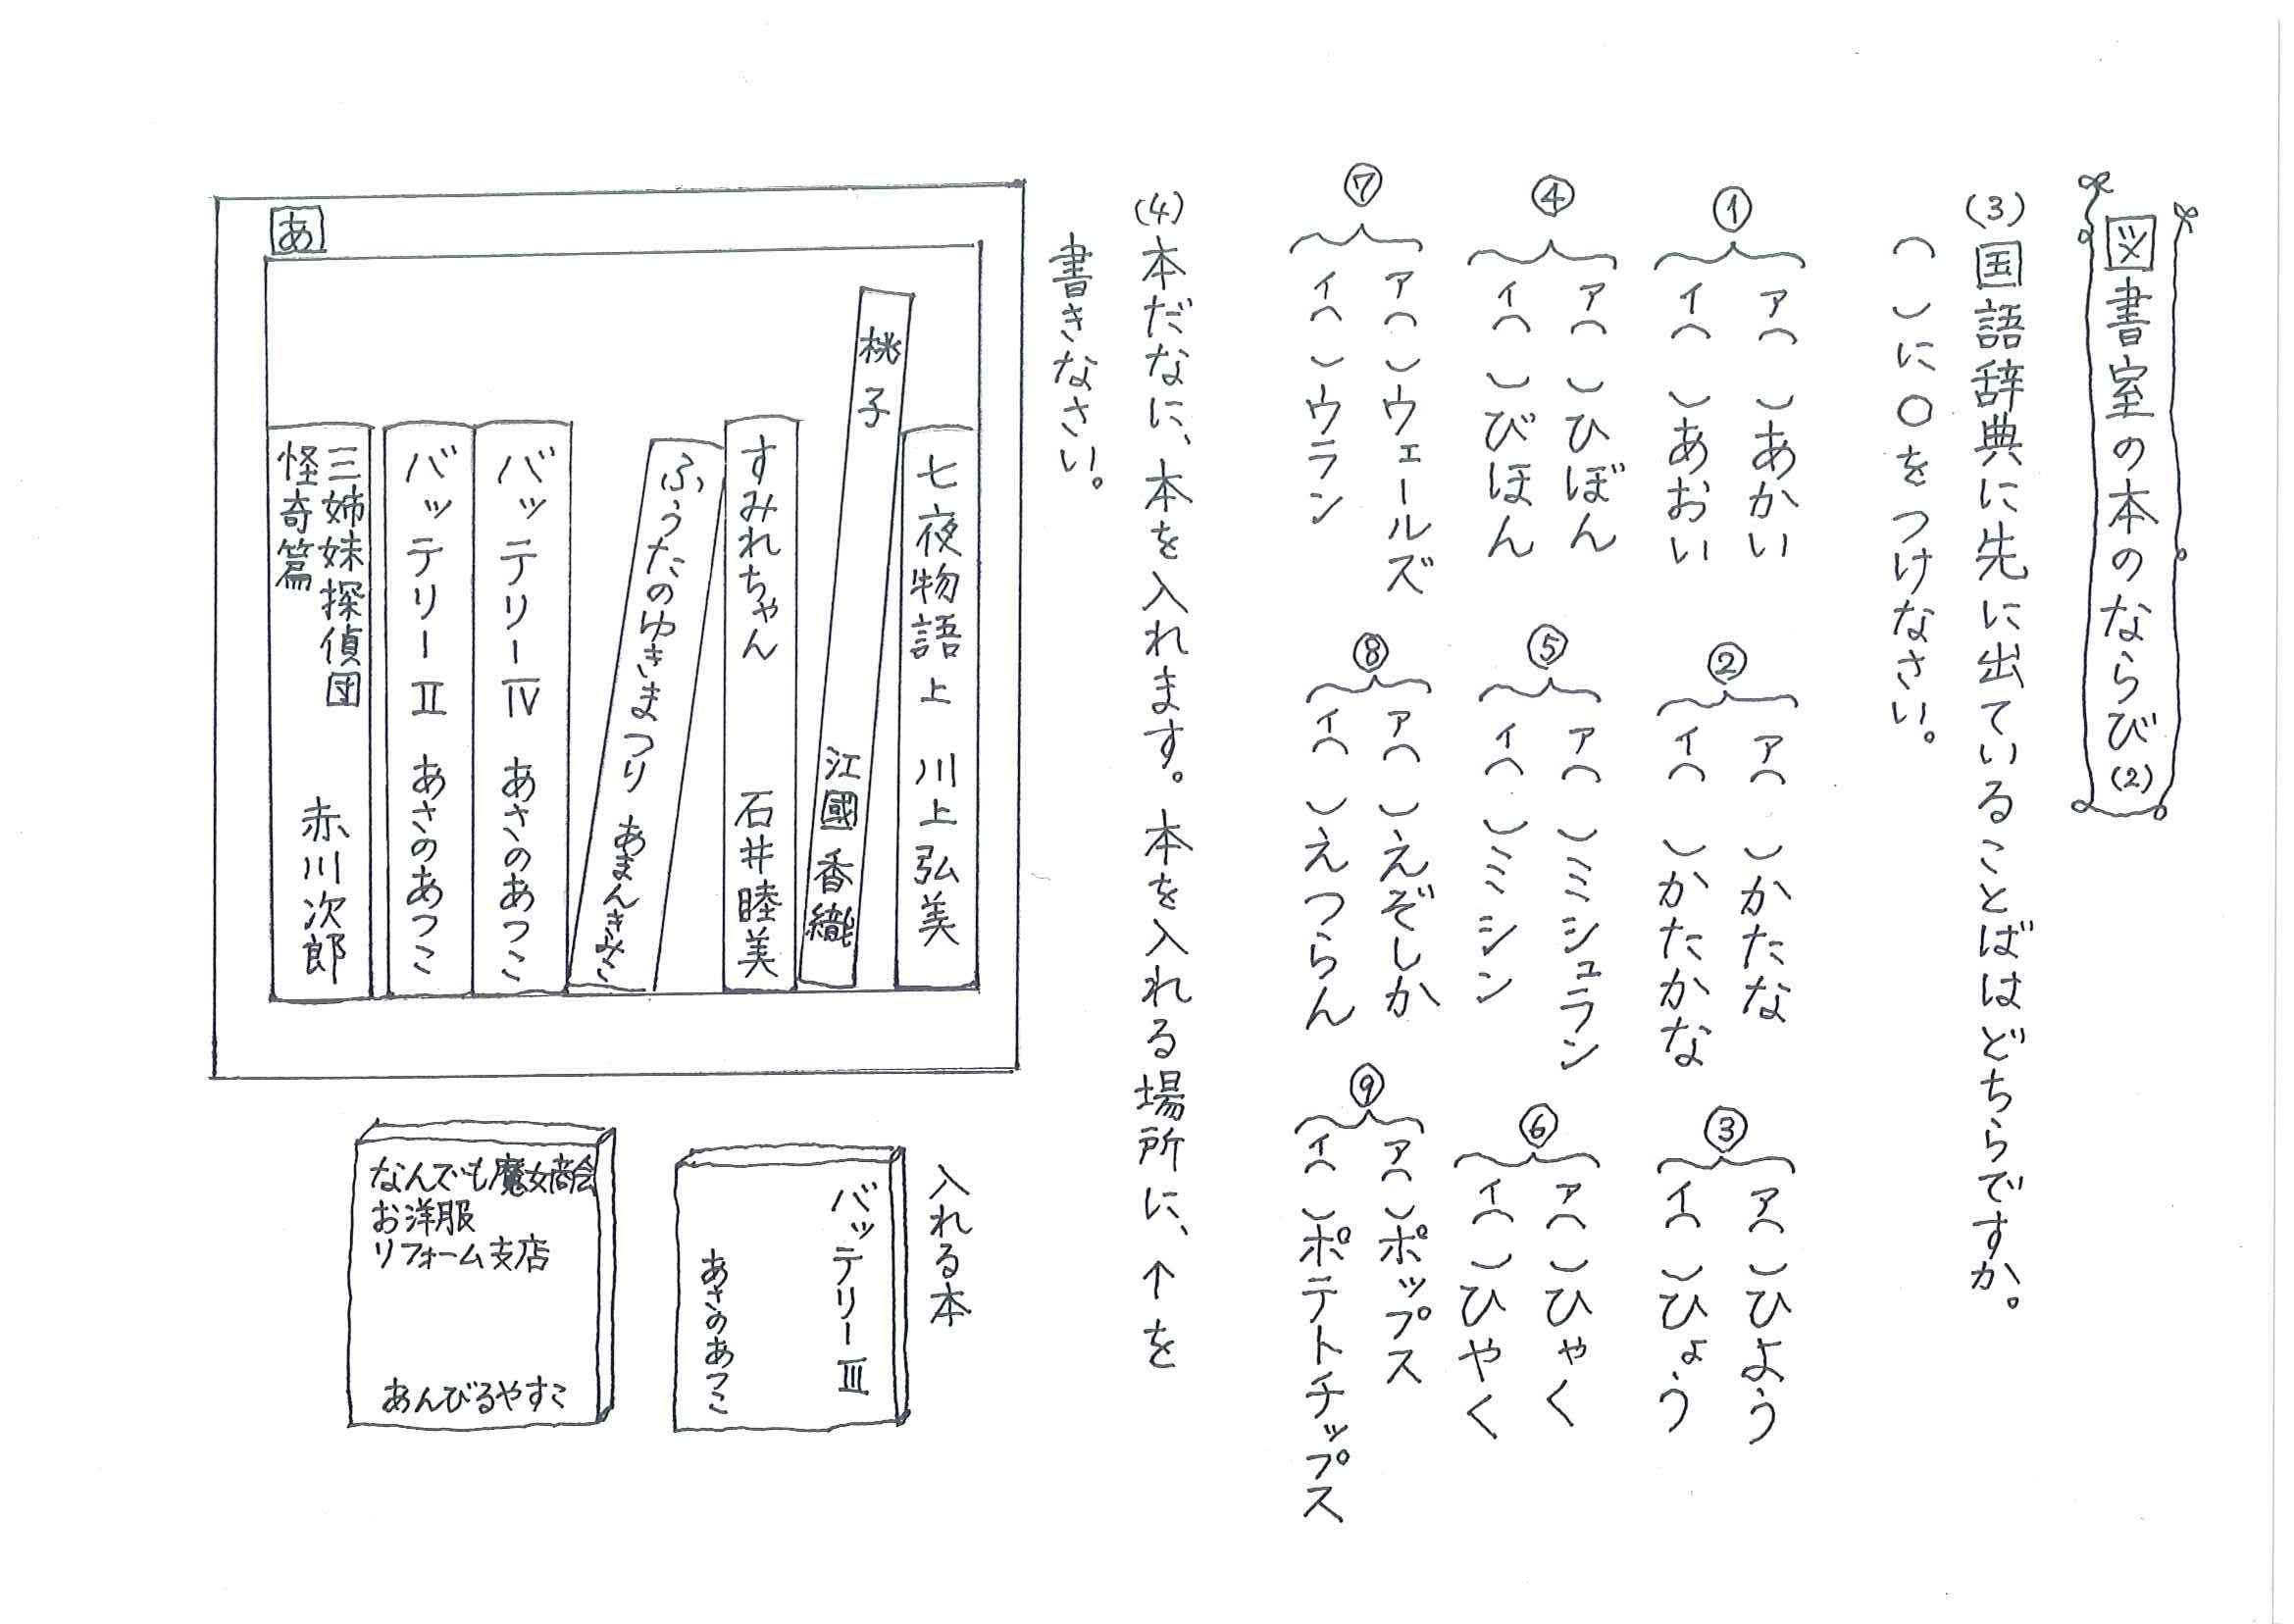 図書室の本のならび(2)
(3)国語辞典に先に出ていることばはどちらですか。
( )に○をつけなさい。
①
ア( )あかい
イ( )あおい
②
ア( )かたな
イ( )かたかな
③
ア( )ひよう
イ( )ひょう
④
ア( )ひぼん
イ( )びほん
⑤
ア( )ミシュラン
イ( )ミシン
⑥
ア( )ひゃく
イ( )ひやく
⑦
ア( )ウェールズ
イ( )ウラン
⑧
ア( )えぞしか
イ( )えつらん
⑨
ア( )ポップス
イ( )ポテトチップス
(4)本だなに、本を入れます。本を入れる場所に、↑を
書きなさい。
あ
七夜物語上 川上弘美
桃子 江國香織
すみれちゃん 石井睦美
ふうたのゆきまつり あまんきみこ
バッテリーⅣ あさのあつこ
バッテリーⅡ あさのあつこ
三姉妹探偵団
怪奇篇
赤川次郎
入れる本
バッテリーⅢ
あさのあつこ
なんでも魔女商会
お洋服
リフォーム支店
あんびるやすこ